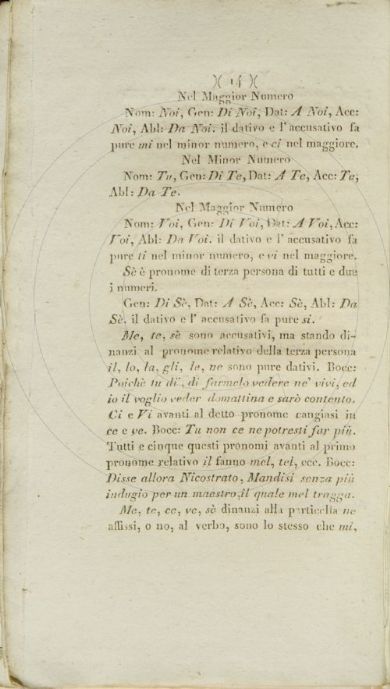 )( 14 )(
Nel Maggior Numero
Nom: Noi, Gen: Di Noi, Dat: A Noi, Acc:
Noi, Abl: Da Noi. il dativo e l'accusativo fa
pure mi nel minor numero, e ci nel maggiore.
Nel Minor Numero
Nom: Tu, Gen: Di Te, Dat: A Te, Acc: Te,
Abl: Da Te.
Nel Maggior Numero
Nom: Voi, Gen: Di Voi, Dat: A Voi, Acc:
Voi, Abl: Da Voi. il dativo e l'accusativo fa
pure ti nel minor numero, e vi nel maggiore.
Sè è pronome di terza persona di tutti e due
i numeri.
Gen: Di Sè, Dat: A Sè, Acc: Sè, Abl: Da
Sè, il dativo e l'accusativo fa pure si.
Me, te, sè sono accusativi, ma stando di-
nanzi al pronome relativo della terza persona
il, lo, la, gli, le, ne sono pure dativi. Bocc:
Poichè tu di', di farmelo vedere ne' vivi, ed
io il voglio veder domattina e sarò contento.
Ci e Vi avanti al detto pronome cangiasi in
ce e ve. Bocc: Tu non ce ne potresti far più.
Tutti e cinque questi pronomi avanti al primo
pronome relativo il fanno mel, tel, ecc. Bocc:
Disse allora Nicostrato, Mandisi senza più
indugio per un maestro, il quale mel tragga.
Me, te, ce, ve, sè dinanzi alla particella ne
affissi, o no, al verbo, sono lo stesso che mi,